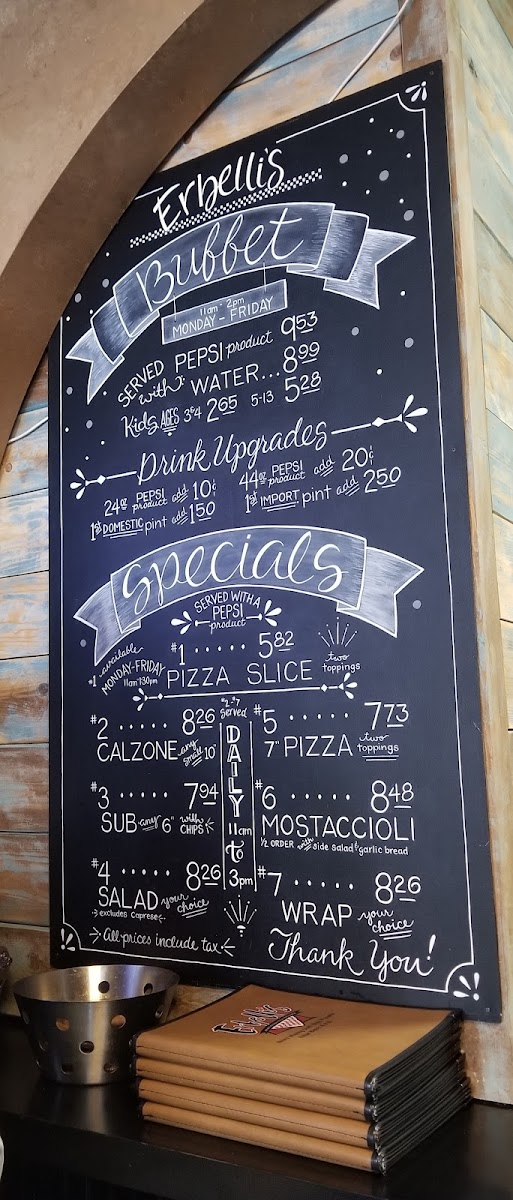 Erbelli's
Buffet
11am - 2pm
MONDAY - FRIDAY
SERVED with: PEPSI product 9.53
WATER... 8.99
Kids AGES 3&4 2.65 5-13 5.28
Drink Upgrades
24oz PEPSI product add 10¢
44oz PEPSI product add 20¢
1st DOMESTIC pint add 1.50
1st IMPORT pint add 2.50
Specials
SERVED WITH A
PEPSI
product
#1 available
MONDAY-FRIDAY
11am-1:30pm
#1 ...... 5.82
PIZZA SLICE two toppings
#2-#7
served
DAILY
11am
to
3pm
#2 ..... 8.26
CALZONE any small 10"
#3 ..... 7.94
SUB any 6" with CHIPS
#4 ..... 8.26
SALAD your choice
excludes Caprese
#5 ...... 7.73
7" PIZZA two toppings
#6 ...... 8.48
MOSTACCIOLI
1/2 ORDER with side salad & garlic bread
#7 ..... 8.26
WRAP your choice
All prices include tax
Thank You!
Erbelli's